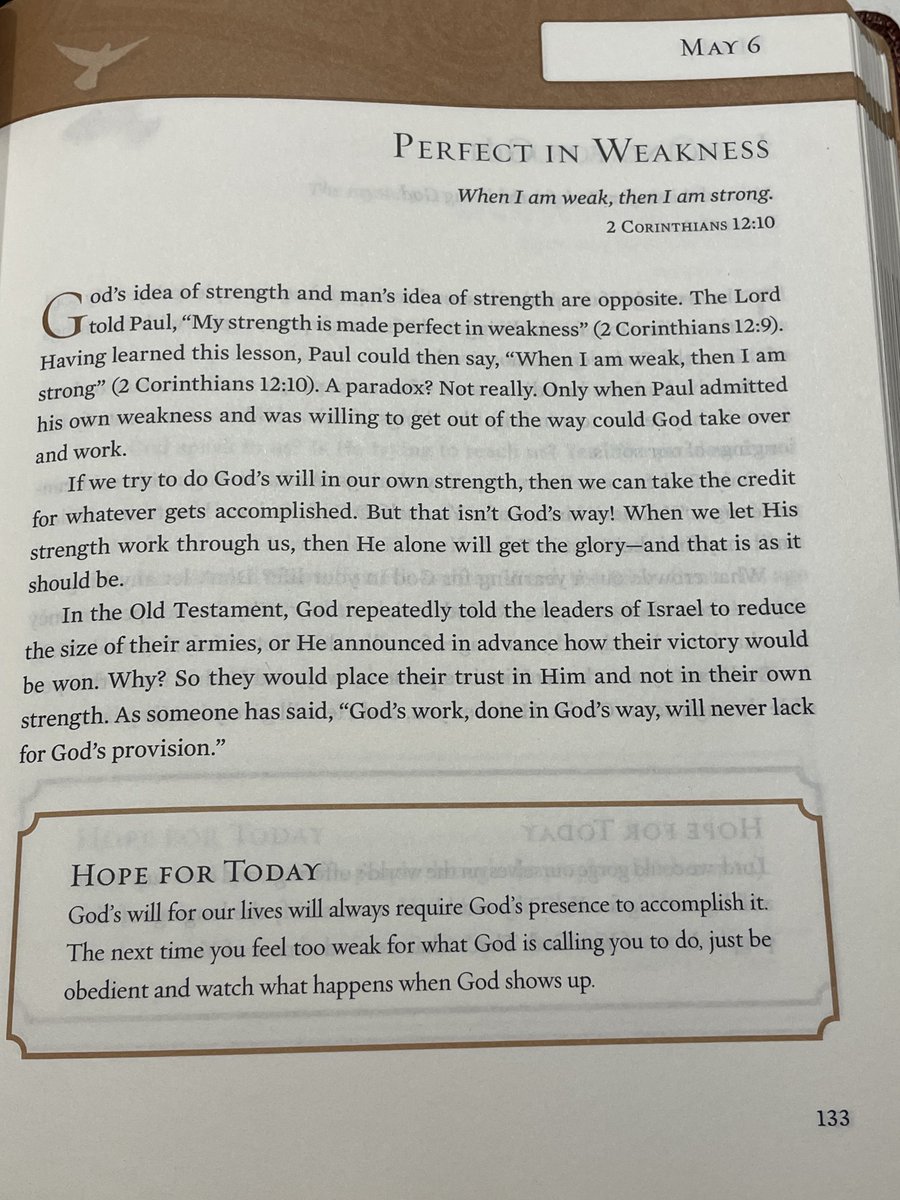 May 6
Perfect in Weakness
When I am weak, then I am strong.
2 Corinthians 12:10
God's idea of strength and man's idea of strength are opposite. The Lord
told Paul, “My strength is made perfect in weakness” (2 Corinthians 12:9).
Having learned this lesson, Paul could then say, “When I am weak, then I am
strong” (2 Corinthians 12:10). A paradox? Not really. Only when Paul admitted
his own weakness and was willing to get out of the way could God take over
and work.
If we try to do God's will in our own strength, then we can take the credit
for whatever gets accomplished. But that isn't God's way! When we let His
strength work through us, then He alone will get the glory—and that is as it
should be.
In the Old Testament, God repeatedly told the leaders of Israel to reduce
the size of their armies, or He announced in advance how their victory would
be won. Why? So they would place their trust in Him and not in their own
strength. As someone has said, “God's work, done in God's way, will never lack
for God's provision.”
Hope for Today
God's will for our lives will always require God's presence to accomplish it.
The next time you feel too weak for what God is calling you to do, just be
obedient and watch what happens when God shows up.
133